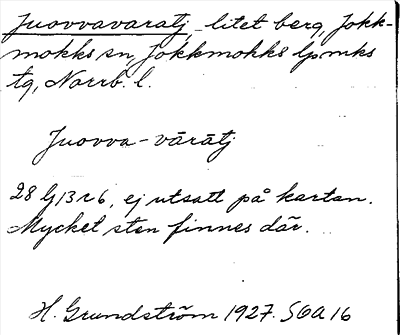 Juovvavaratj, litet berg, Jokk-
mokks sn, Jokkmokks lpmks
tg, Norrb. l.
Juovva-vārātj
28 Ij 13 r 6, ej utsatt på kartan.
Mycket sten finnes där.
H. Grundström 1927. SOA 16